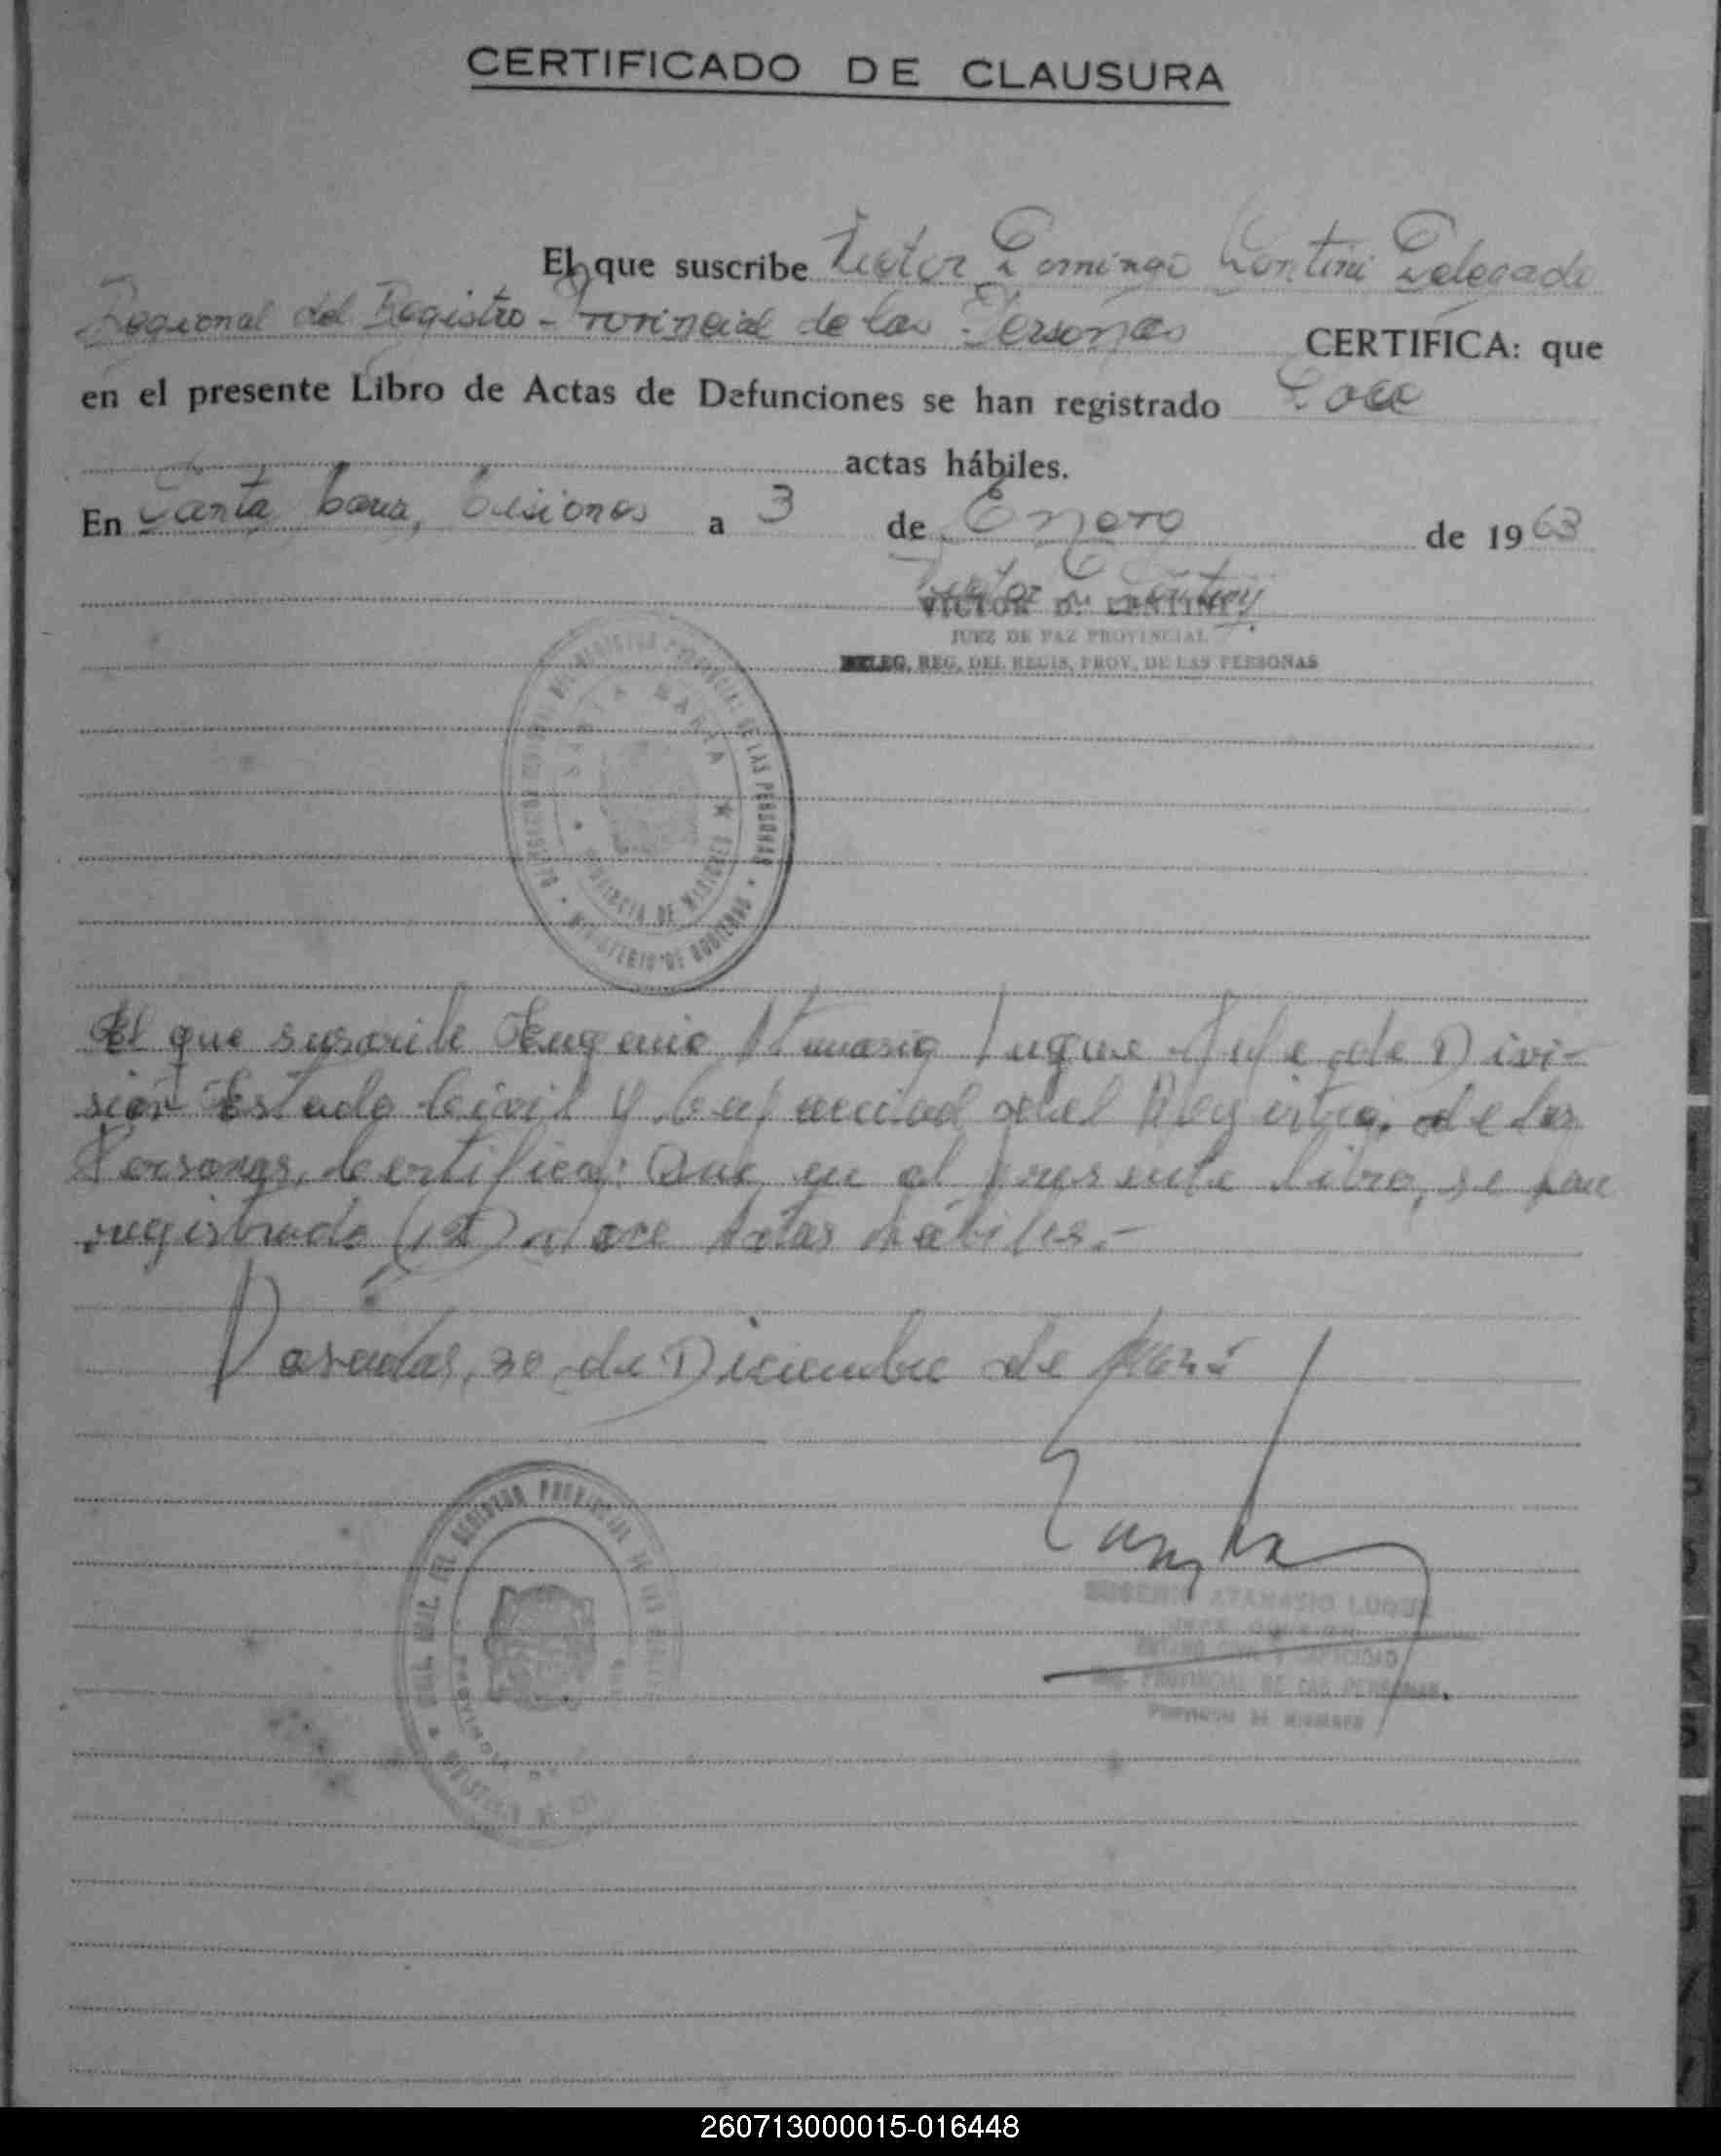 CERTIFICADO DE CLAUSURA
El que suscribe Victor Domingo Contini Delegado
Regional del Registro Provincial de las Personas CERTIFICA: que
en el presente Libro de Actas de Defunciones se han registrado Doce
actas hábiles.
En Santa María, Misiones a 3 de Enero de 1963
JUEZ DE PAZ PROVINCIAL
DELEG. REG. DEL REGIS. PROV. DE LAS PERSONAS
REGISTRO PROVINCIAL DE LAS PERSONAS
SANTA MARIA
PROVINCIA DE MISIONES
MINISTERIO DE GOBIERNO
El que suscribe Eugenio Atanasio Luque Jefe de Divi-
sión Estado Civil y Capacidad del Registro de las
Personas, Certifica: Que en el presente libro, se han
registrado (12) doce Actas hábiles.-
Posadas, 30 de Diciembre de
REGISTRO PROVINCIAL DE LAS
EUGENIO ATANASIO LUQUE
ESTADO CIVIL Y CAPACIDAD
REG. PROVINCIAL DE LAS PERSONAS
PROVINCIA DE MISIONES
260713000015-016448